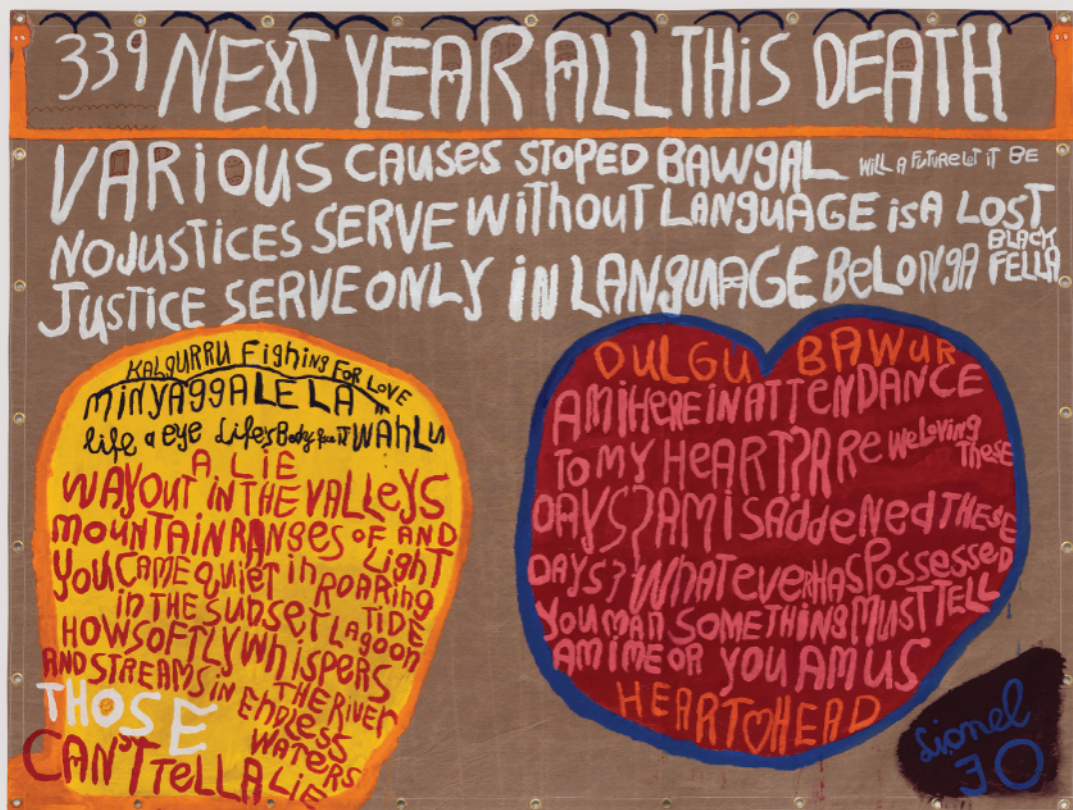 339 NEXT YEAR ALL THiS DEATH
VARiOUS CAUSES STOPED BAWgAL WiLL A FUTURE LET iT BE
NOJUSTiCES SERVE WiTHOUT LANgUAGE iS A LOST
BLACK
JUSTiCE SERVE ONLY iN LANgUAGE BELONgA FELLA
KALgURRU FigHiNg FOR LOVE
MiNYAggALELA
life a eye Life's Body WAHLU
A LiE
WAYOUT iN THE VALLEYS
MOUNTAiN RANgES OF AND
LigHT
YOU CAME QUiET iN ROARiNg
TiDE
iN THE SUNSET LAgOON
HOW SOFTLY WHiSPERS
AND STREAMS iN THE RiVER
ENDLESS
WATERS
THOSE
CAN'T TELL A LiE
DULgU BAWUR
AMiHERE iN ATTENDANCE
TO MY HEART? ARE WE LOViNg
THESE
DAYS? AM i SADDENED THESE
DAYS? WHATEVER HAS POSSESSED
YOU MAN SOMETHiNg MUST TELL
AM i ME OR YOU AM US
HEART♡HEAD
Lionel
JO